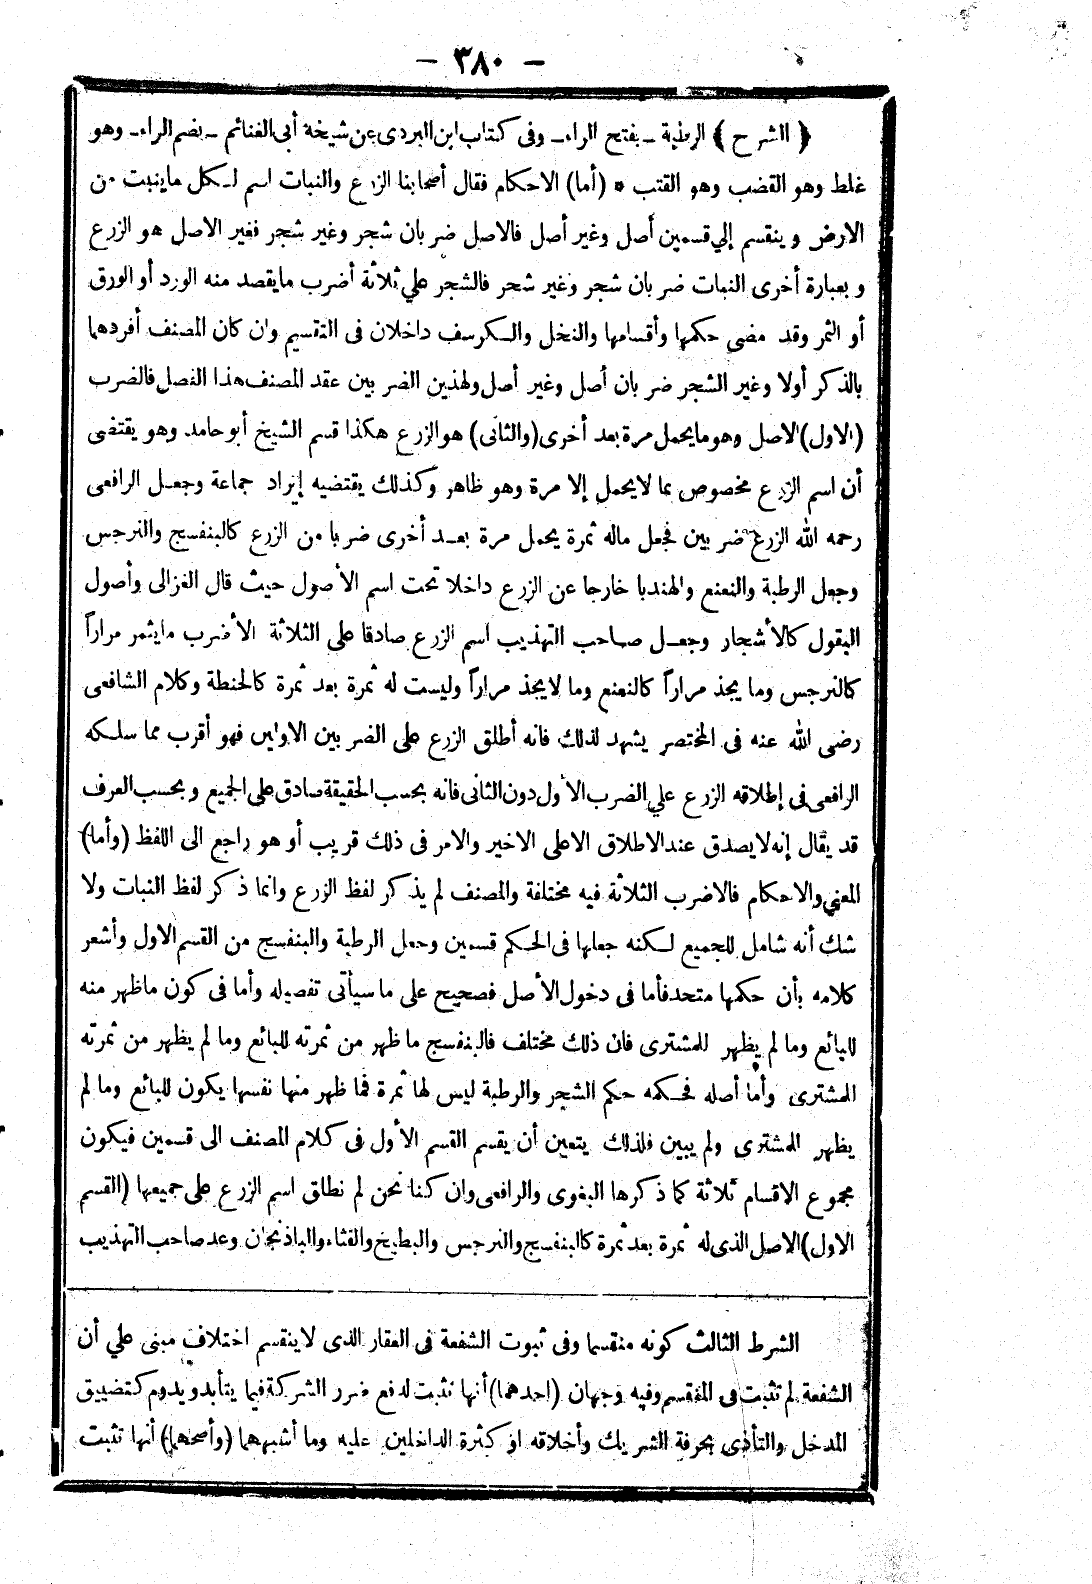 — ٣٨٠ —
﴿ الشرح ﴾ الرطبة ـ بفتح الراء ـ وفى كتاب ابن البردى عن شيخه أبى الغنائم ـ بضم الراء ـ وهو
غلط وهو القضب وهو القتب * (أما) الاحكام فقال أصحابنا الزرع والنبات اسم لكل ماينبت من
الارض وينقسم إلي قسمين أصل وغير أصل فالاصل ضربان شجر وغير شجر فغير الاصل هو الزرع
وبعبارة أخرى النبات ضربان شجر وغير شجر فالشجر علي ثلاثة أضرب مايقصد منه الورد أو الورق
أو الثمر وقد مضى حكمها وأقسامها والنخل والكرسف داخلان فى التقسيم وان كان المصنف أفردهما
بالذكر أولا وغير الشجر ضربان أصل وغير أصل ولهذين الضربين عقد المصنف هذا الفصل فالضرب
(الاول) الاصل وهو مايحمل مرة بعد أخرى (والثانى) هو الزرع هكذا قسم الشيخ أبو حامد وهو يقتضى
أن اسم الزرع مخصوص بما لايحمل إلا مرة وهو ظاهر وكذلك يقتضيه إيراد جماعة وجعل الرافعى
رحمه الله الزرع ضربين فجعل ماله ثمرة يحمل مرة بعد أخرى ضربا من الزرع كالبنفسج والنرجس
وجعل الرطبة والنعنع والهندبا خارجا عن الزرع داخلا تحت اسم الأصول حيث قال الغزالى وأصول
البقول كالأشجار وجعل صاحب التهذيب اسم الزرع صادقا على الثلاثة الأضرب مايثمر مراراً
كالنرجس وما يجذ مراراً كالنعنع وما لايجذ مراراً وليست له ثمرة بعد ثمرة كالحنطة وكلام الشافعى
رضى الله عنه فى المختصر يشهد لذلك فانه أطلق الزرع على الضربين الاولين فهو أقرب مما سلكه
الرافعى فى إطلاقه الزرع علي الضرب الأول دون الثانى فانه بحسب الحقيقة صادق على الجميع وبحسب العرف
قد يقال إنه لايصدق عند الاطلاق الاعلى الاخير والامر فى ذلك قريب أو هو راجع الى اللفظ (وأما)
المعني والاحكام فالاضرب الثلاثة فيه مختلفة والمصنف لم يذكر لفظ الزرع وانما ذكر لفظ النبات ولا
شك أنه شامل للجميع لكنه جعلها فى الحكم قسمين وجعل الرطبة والبنفسج من القسم الاول وأشعر
كلامه بأن حكمها متحد فأما فى دخول الأصل فصحيح على ما سيأتى تفصيله وأما فى كون ماظهر منه
للبائع وما لم يظهر للمشترى فان ذلك مختلف فالبنفسج ما ظهر من ثمرته للبائع وما لم يظهر من ثمرته
للمشترى وأما أصله فحكمه حكم الشجر والرطبة ليس لها ثمرة فما ظهر منها نفسها يكون للبائع وما لم
يظهر للمشترى ولم يبين فلذلك يتعين أن يقسم القسم الأول فى كلام المصنف الى قسمين فيكون
مجموع الاقسام ثلاثة كما ذكرها البغوى والرافعى وان كنا نحن لم نطلق اسم الزرع على جميعها (القسم
الاول) الاصل الذى له ثمرة بعد ثمرة كالبنفسج والنرجس والبطيخ والقثاء والباذنجان وعد صاحب التهذيب
الشرط الثالث كونه منقسما وفى ثبوت الشفعة فى العقار الذى لاينقسم اختلاف مبنى علي أن
الشفعة لم تثبت فى المنقسم وفيه وجهان (احدهما) أنها تثبت لدفع ضرر الشركة فيما يتأبد ويدوم كتضييق
المدخل والتأذى بحرفة الشريك وأخلاقه او كثرة الداخلين عليه وما أشبههما (وأصحهما) أنها تثبت